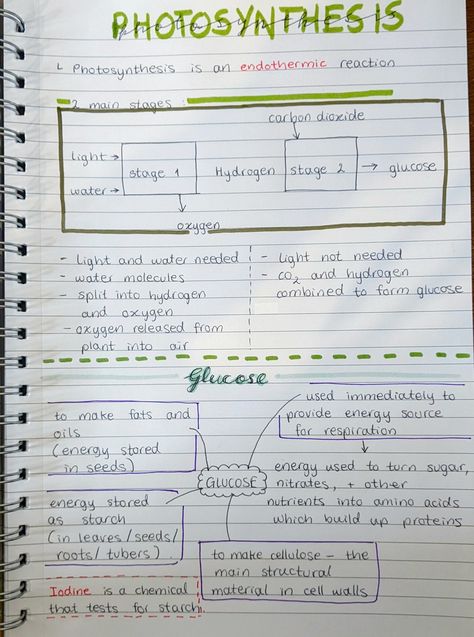 PHOTOSYNTHESIS
Photosynthesis is an endothermic reaction
2 main stages :
carbon dioxide
light →
stage 1
Hydrogen
stage 2
→ glucose
water →
oxygen
- Light and water needed
- water molecules
- split into hydrogen
and oxygen
- oxygen released from
plant into air
- Light not needed
- CO₂ and hydrogen
combined to form glucose
Glucose
to make fats and
oils
(energy stored
in seeds)
used immediately to
provide energy source
for respiration
GLUCOSE
energy used to turn sugar,
nitrates, + other
nutrients into amino acids
which build up proteins
energy stored
as starch
(in leaves/seeds/
roots/tubers)
to make cellulose – the
main structural
material in cell walls
Iodine is a chemical
that tests for starch.